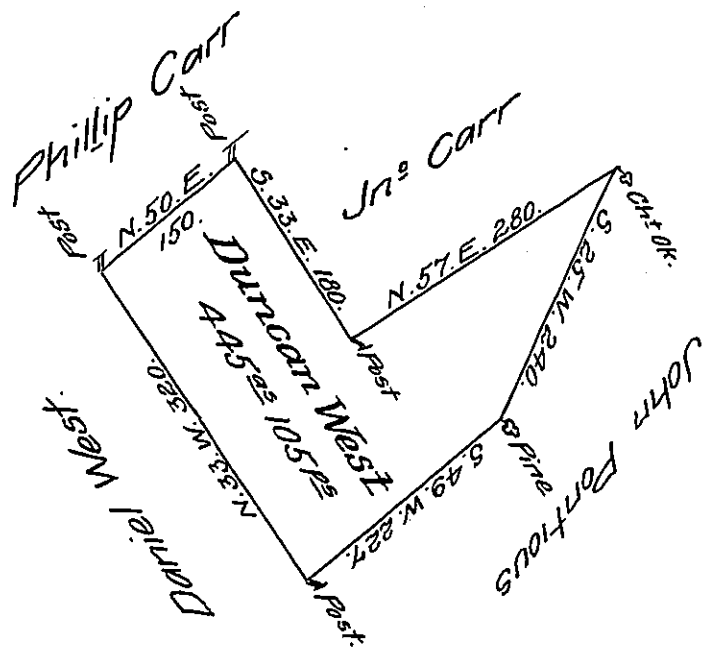 Phillip Carr
Post
Jnº Carr
Post
N. 50. E.
150.
S. 33. E. 180.
N. 57. E. 280.
Chᵗ Ok.
S. 25. W. 240.
Duncan West
445ᵃˢ 105ᵖˢ
Post
John Pontious
Pine
S. 49. W. 227.
N. 33. W. 320.
Daniel West.
Post.